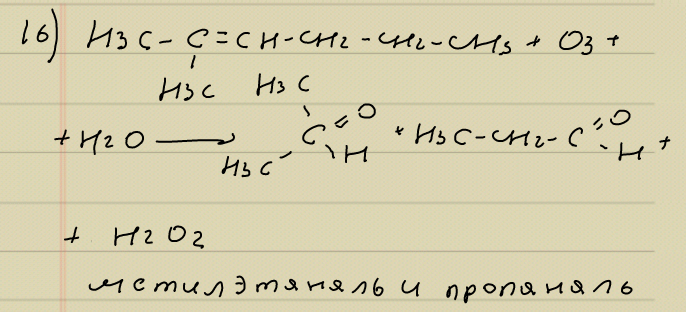 16) H3C-C=CH-CH2-CH2-CH3 + O3 +
H3C H3C
+ H2O ⟶ C=O + H3C-CH2-C=O +
H3C H H
+ H2O2
метилэтаналь и пропаналь